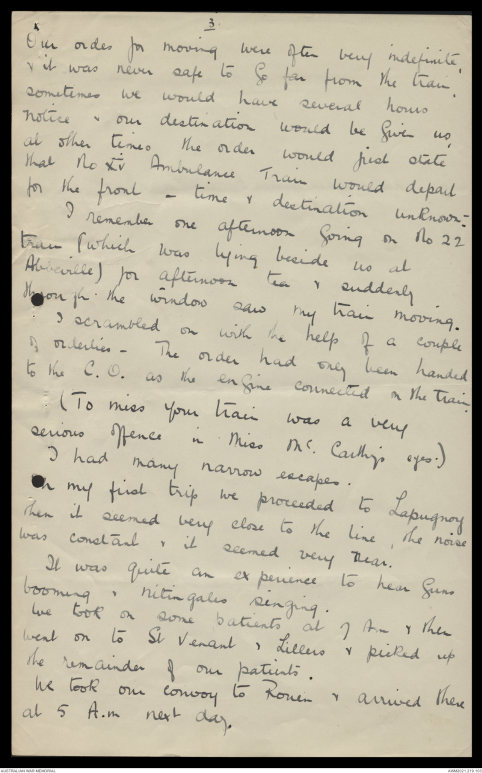 3.
Our ordes for moving were often very indefinite,
& it was never safe to go far from the train,
sometimes we would have several hours
notice & our destination would be given us,
at other times the order would just state
that No XIV Ambulance Train would depart
for the front - time & destination unknown -
I remember one afternoon going on No 22
train (which was lying beside us at
Abbeville) for afternoon tea & suddenly
through the window saw my train moving.
I scrambled on with the help of a couple
of orderlies - The order had only been handed
to the C.O. as the engine connected on the train.
(To miss your train was a very
serious offence in Miss Mc. Carthy's eyes.)
I had many narrow escapes.
On my first trip we proceeded to Lapugnoy
then it seemed very close to the line, the noise
was constant & it seemed very near.
It was quite an experience to hear guns
booming & nitingales singing.
We took on some patients at 7 Am & then
went on to St Venant & Lillers & picked up
the remainder of our patients.
We took our convoy to Rouen & arrived there
at 5 A.m next day.
AUSTRALIAN WAR MEMORIAL